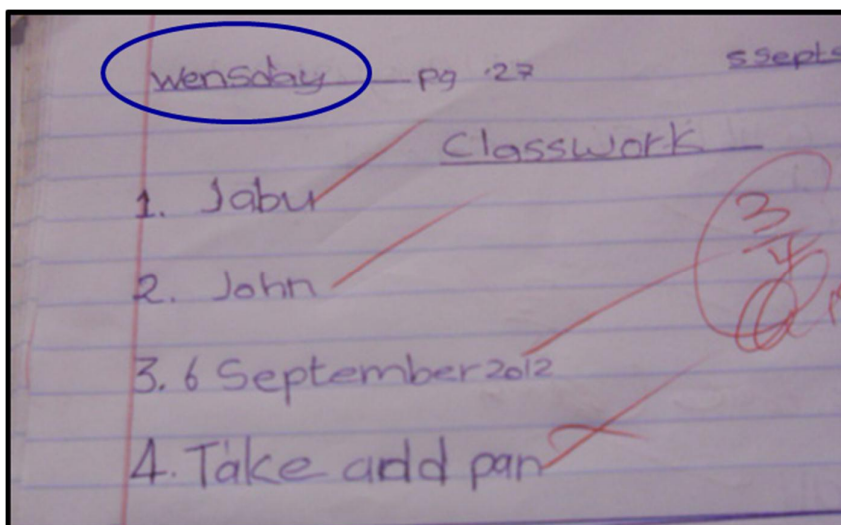 Wensday pg .27 5Septs
Classwork
1. Jabu
2. John
3. 6 September 2012
4. Take add pan
3/4